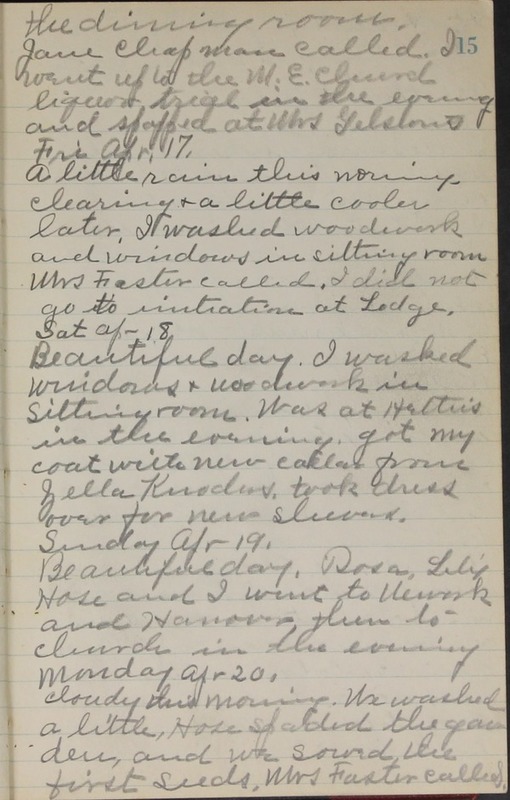 the dining room.
Jane Chapman called. I
15
went up to the M. E. Church
liquor trial in the evening
and stopped at Mrs Gelstons
Fri Apr. 17.
A little rain this morning
clearing & a little cooler
later, I washed woodwork
and windows in sitting room
Mrs Faster called. I did not
go to initiation at Lodge.
Sat Ap- 18
Beautiful day. I washed
windows & woodwork in
sitting room. Was at Hettis
in the evening. got my
coat with new collar from
Zella Knodes, took dress
over for new sleeves.
Sunday Apr 19.
Beautiful day. Rosa, Lily
Hose and I went to Newark
and Hanover, then to
church in the evening
Monday Apr 20.
Cloudy this morning. We washed
a little, Hose spaded the gar
den, and we sowed the
first seeds, Mrs Faster called.